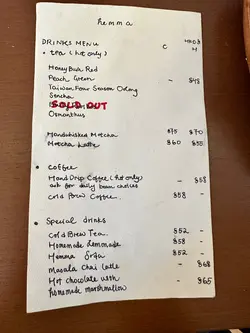 hemma
DRINKS MENU C H
• tea (hot only)
Honeybush Red
Peach Green - $48
Taiwan Four Season Oolong
Sencha
SOLD OUT
Osmanthus
Handwhisked Matcha $75 $70
Matcha Latte $60 $55
• coffee
Hand Drip Coffee (hot only) - $58
ask for daily bean choices
Cold Brew Coffee $58 -
• Special drinks
Cold Brew Tea $52 -
Homemade Lemonade $58 -
Hemma Soga $52 -
Masala Chai Latte - $68
Hot chocolate with - $65
homemade marshmallow